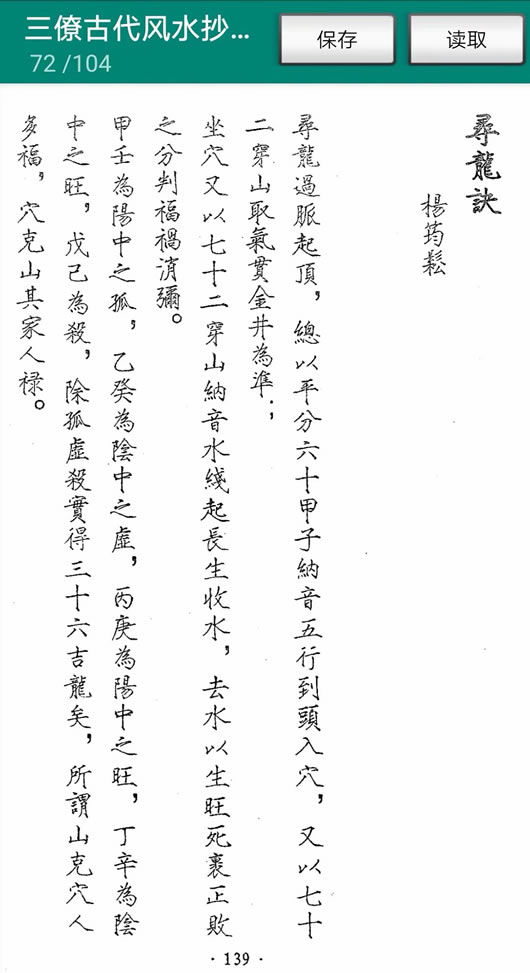 三僚古代风水抄...
72 /104
保存
读取
尋龍訣
楊筠鬆
尋龍過脈起頂，總以平分六十甲子納音五行到頭入穴，又以七十
二穿山取氣貫金井為準；
坐穴又以七十二穿山納音水綫起長生收水，去水以生旺死裹正敗
之分判福禍消彌。
甲壬為陽中之孤，乙癸為陰中之虛，丙庚為陽中之旺，丁辛為陰
中之旺，戊己為殺，除孤虛殺實得三十六吉龍矣，所謂山克穴人
多福，穴克山其家人禄。
·139·